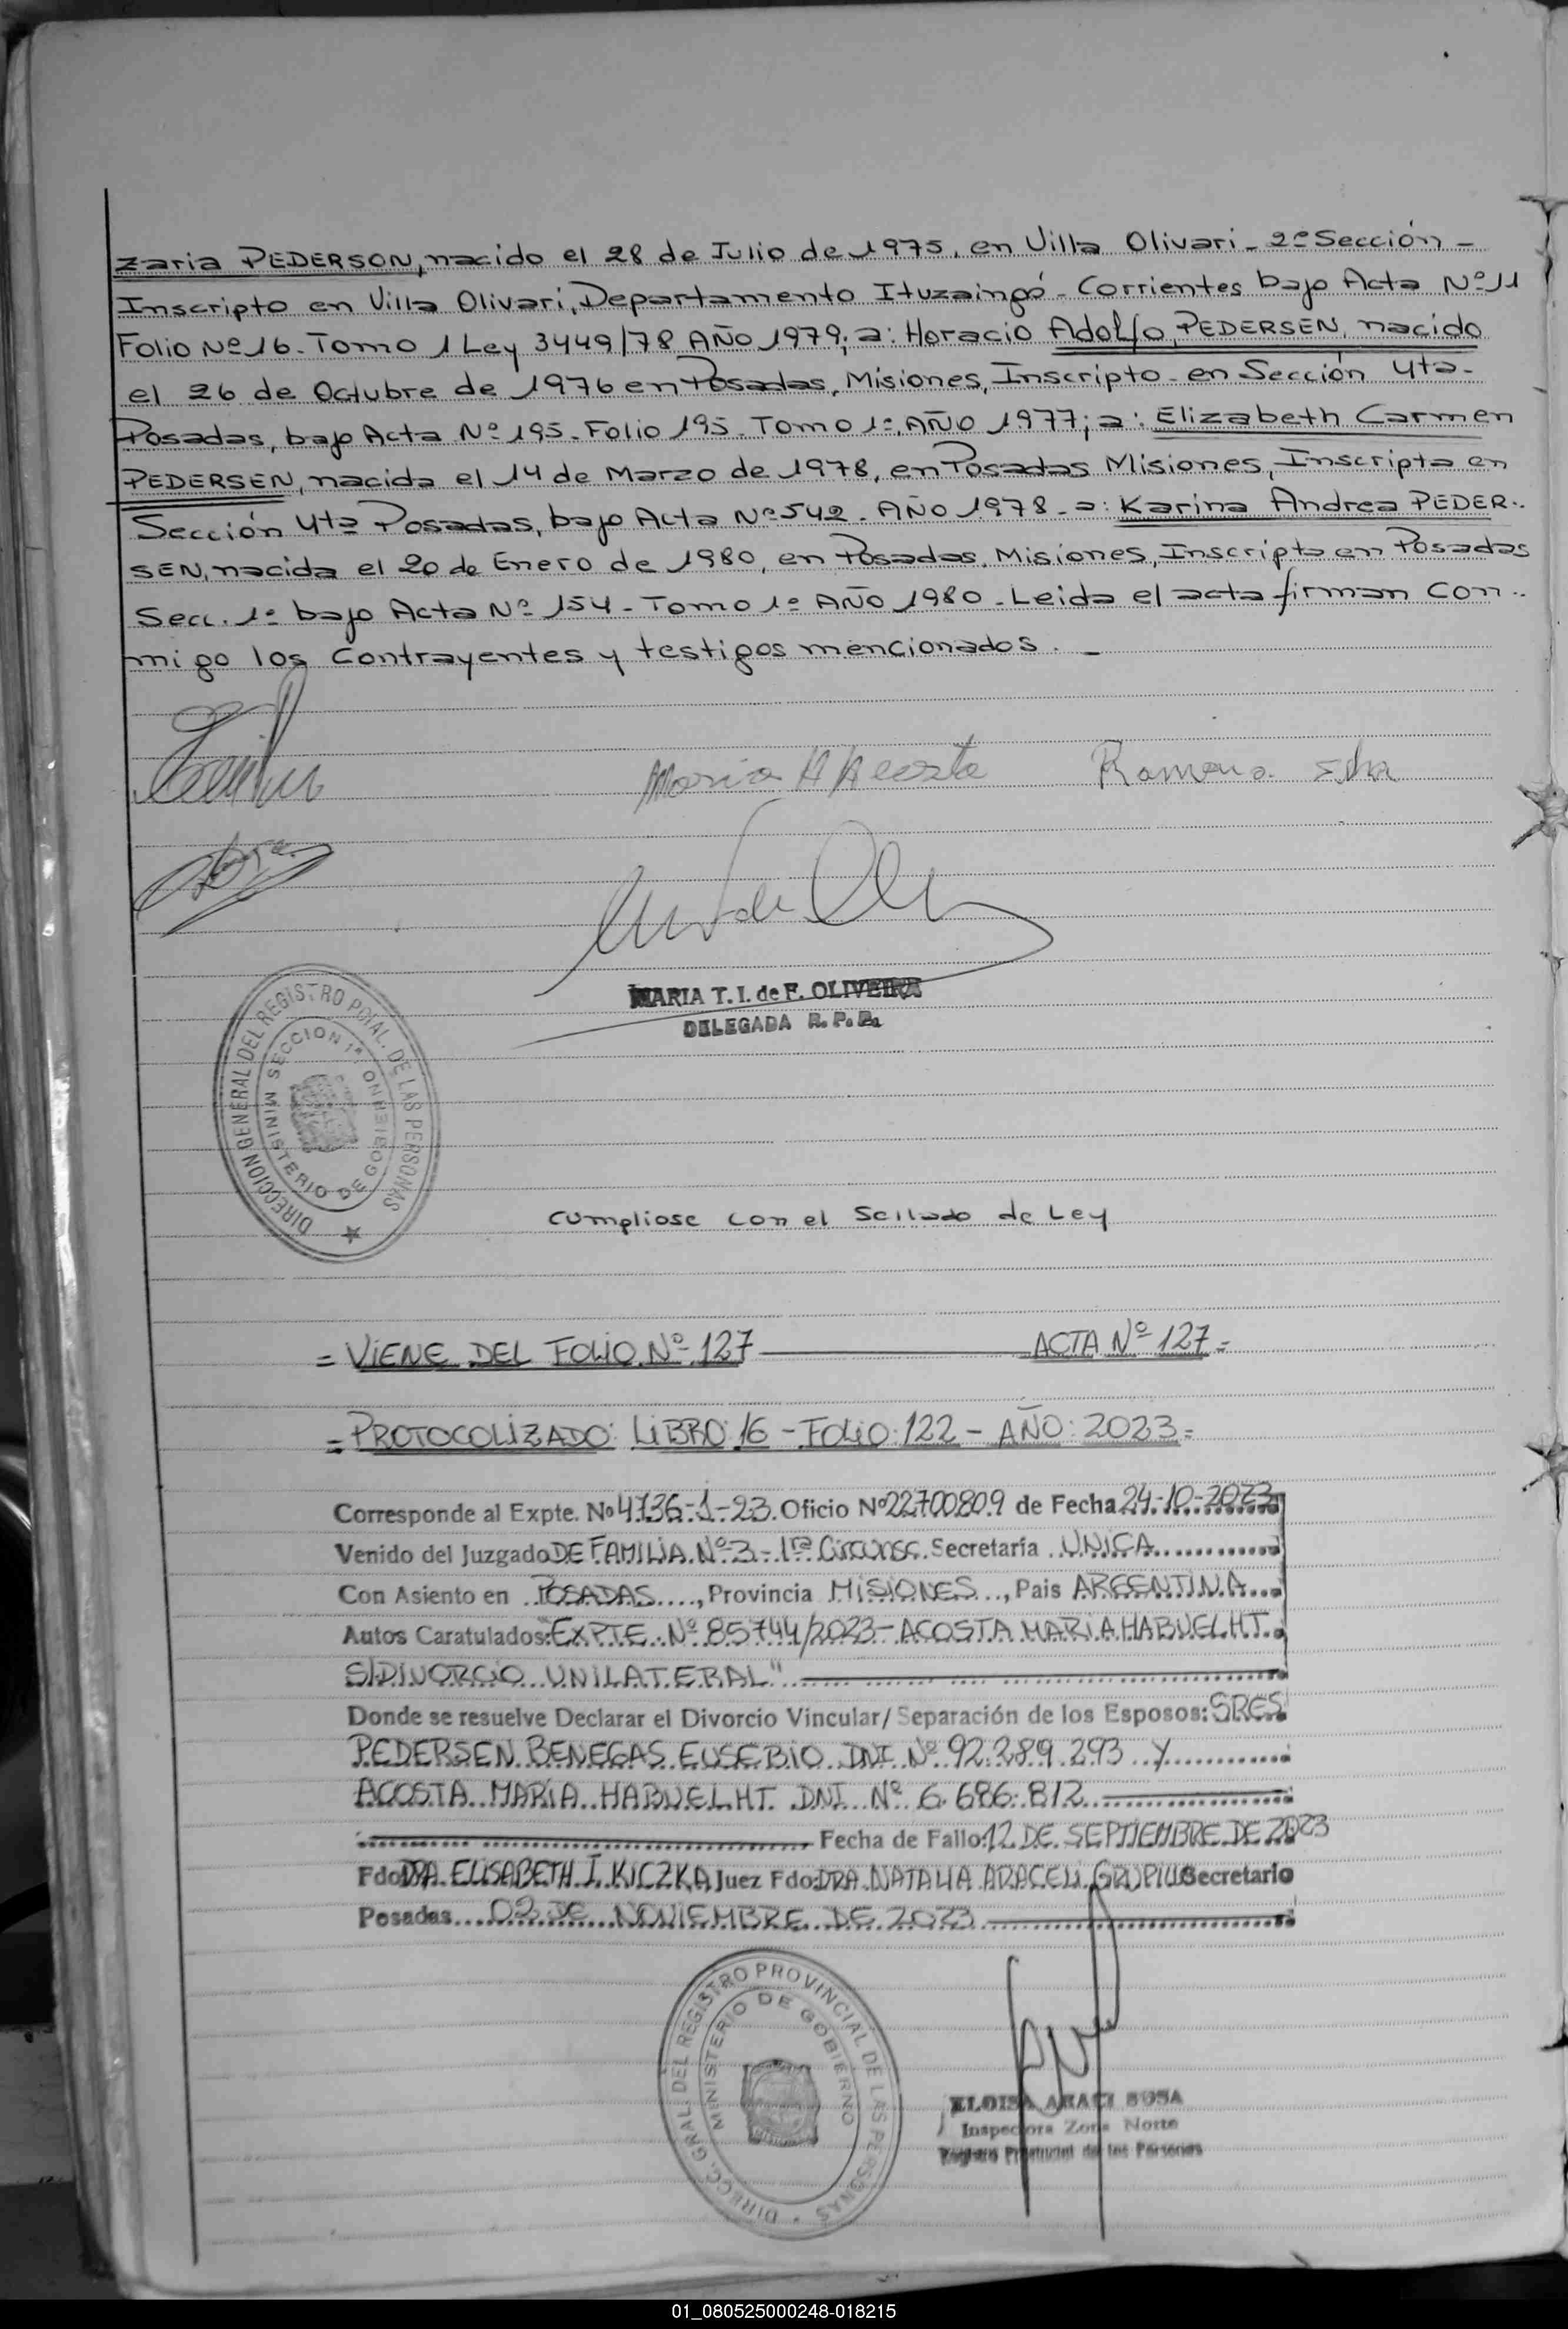 zaria PEDERSON, nacido el 28 de Julio de 1975, en Villa Olivari - 2º Sección -
Inscripto en Villa Olivari, Departamento Ituzaingó - Corrientes bajo Acta Nº 11
Folio Nº 16. Tomo 1 Ley 3449/78 AÑO 1979; a: Horacio Adolfo, PEDERSEN, nacido
el 26 de Octubre de 1976 en Posadas, Misiones, Inscripto - en Sección 4ta -
Posadas, bajo Acta Nº 195. Folio 195. Tomo 1º, AÑO 1977; a: Elizabeth Carmen
PEDERSEN, nacida el 14 de Marzo de 1978, en Posadas Misiones, Inscripta en
Sección 4ta Posadas, bajo Acta Nº 542. AÑO 1978 - a: Karina Andrea PEDER..
SEN, nacida el 20 de Enero de 1980, en Posadas, Misiones, Inscripta en Posadas
Secc. 1º bajo Acta Nº 154 - Tomo 1º AÑO 1980. Leida el acta firman Con..
migo los Contrayentes y testigos mencionados. -
Maria H Acosta Ramona
MARIA T. I. de F. OLIVEIRA
DELEGADA R. P. P.
DIRECCION GENERAL DEL REGISTRO PCIAL. DE LAS PERSONAS
SECCION 1ª
MINISTERIO DE GOBIERNO
Cumpliose con el Sellado de Ley
= VIENE DEL FOLIO Nº 127 ACTA Nº 127 =
= PROTOCOLIZADO: LIBRO: 16 - FOLIO: 122 - AÑO: 2023 =
Corresponde al Expte. Nº 4736-1-23. Oficio Nº 22700809 de Fecha 24-10-2023
Venido del Juzgado DE FAMILIA Nº 3 - 1ra Circunsc. Secretaría UNICA
Con Asiento en POSADAS, Provincia MISIONES, Pais ARGENTINA
Autos Caratulados: "EXPTE. Nº 85744/2023 - ACOSTA MARIA HABUELHT.
S/DIVORCIO UNILATERAL"
Donde se resuelve Declarar el Divorcio Vincular/ Separación de los Esposos: SRES
PEDERSEN BENEGAS EUSEBIO DNI Nº 92.289.293 Y
ACOSTA MARIA HABUELHT DNI Nº 6.686.812
Fecha de Fallo: 12 DE SEPTIEMBRE DE 2023
Fdo: DRA. ELISABETH I. KICZKA Juez Fdo: DRA. NATALIA ARACELI Secretario
Posadas 02 DE NOVIEMBRE DE 2023
DIRECC. GRAL. DEL REGISTRO PROVINCIAL DE LAS PERSONAS
MINISTERIO DE GOBIERNO
ELOISA ARACI SOSA
Inspectora Zona Norte
Registro Provincial de las Personas
01_080525000248-018215